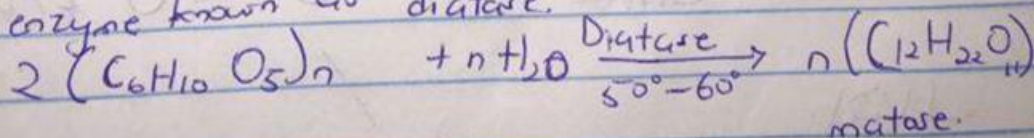 enzyme known as diatase.
2 (C6H10 O5)n + nH2O Diatase 50°-60° → n(C12H22O11)
matose.